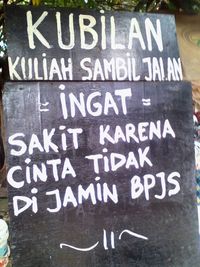 KUBILAN
KULIAH SAMBIL JALAN
= INGAT =
SAKIT KARENA
CINTA TIDAK
DI JAMIN BPJS
~ || ~